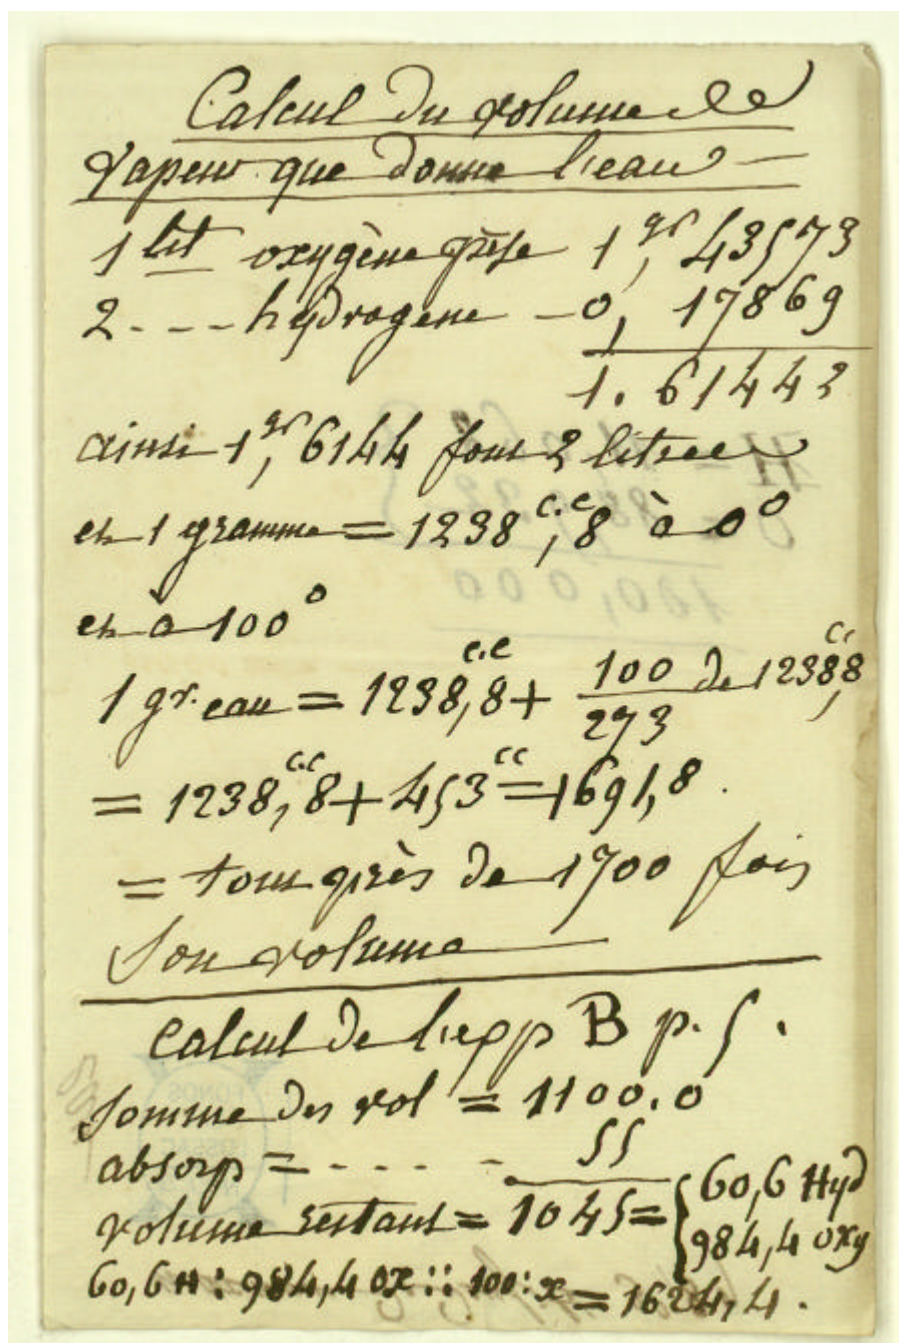 Calcul du volume de
vapeur que donne l'eau —
1 lit oxygène pèse 1gr,43573
2 - - - hydrogene — 0,17869
1.61442
ainsi 1gr,6144 font 2 litres
et 1 gramme = 1238c.c,8 à 0°
et à 100°
1 gr. eau = 1238c.c,8 + 100/273 de 1238cc,8
= 1238c.c,8 + 453cc = 1691,8.
= tout près de 1700 fois
son volume
Calcul de l'exp B p. 5.
Somme des vol = 1100.0
absorp = - - - - - 55
volume restant = 1045 = { 60,6 Hyd
984,4 oxy
60,6 H : 984,4 ox :: 100 : x = 1624,4.